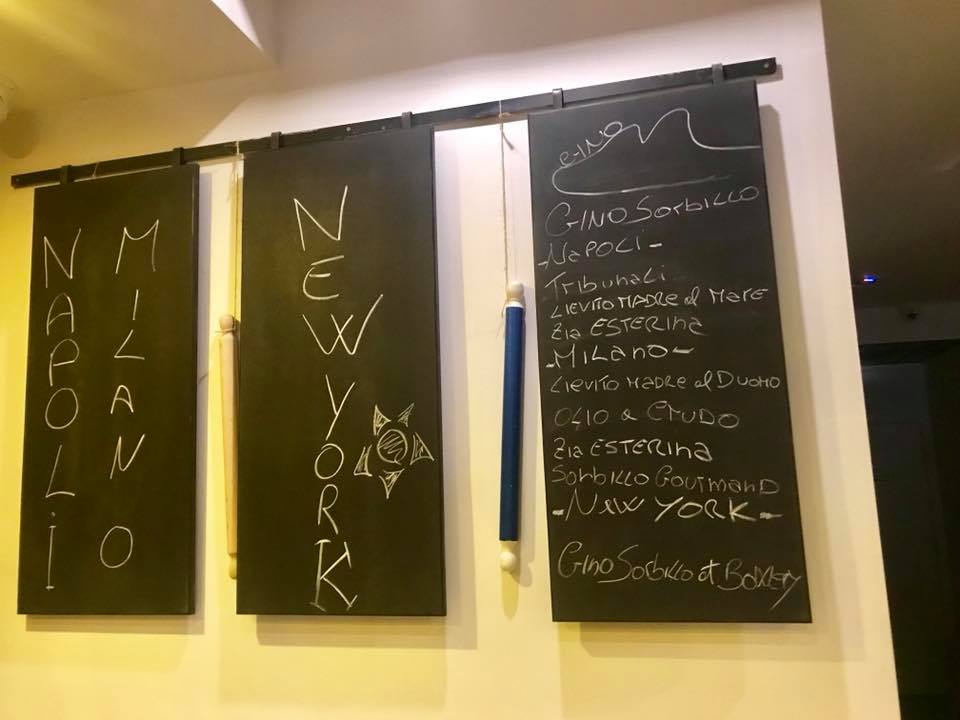 NAPOLI
MILANO
NEW YORK
GINO SORBILLO
-NAPOLI-
Tribunali
LIEVITO MADRE al MARE
Zia ESTERINA
-MILANO-
LIEVITO MADRE al DUOMO
OLIO a CRUDO
Zia ESTERINA
SORBILLO GOURMAND
-NEW YORK-
GINO SORBILLO at